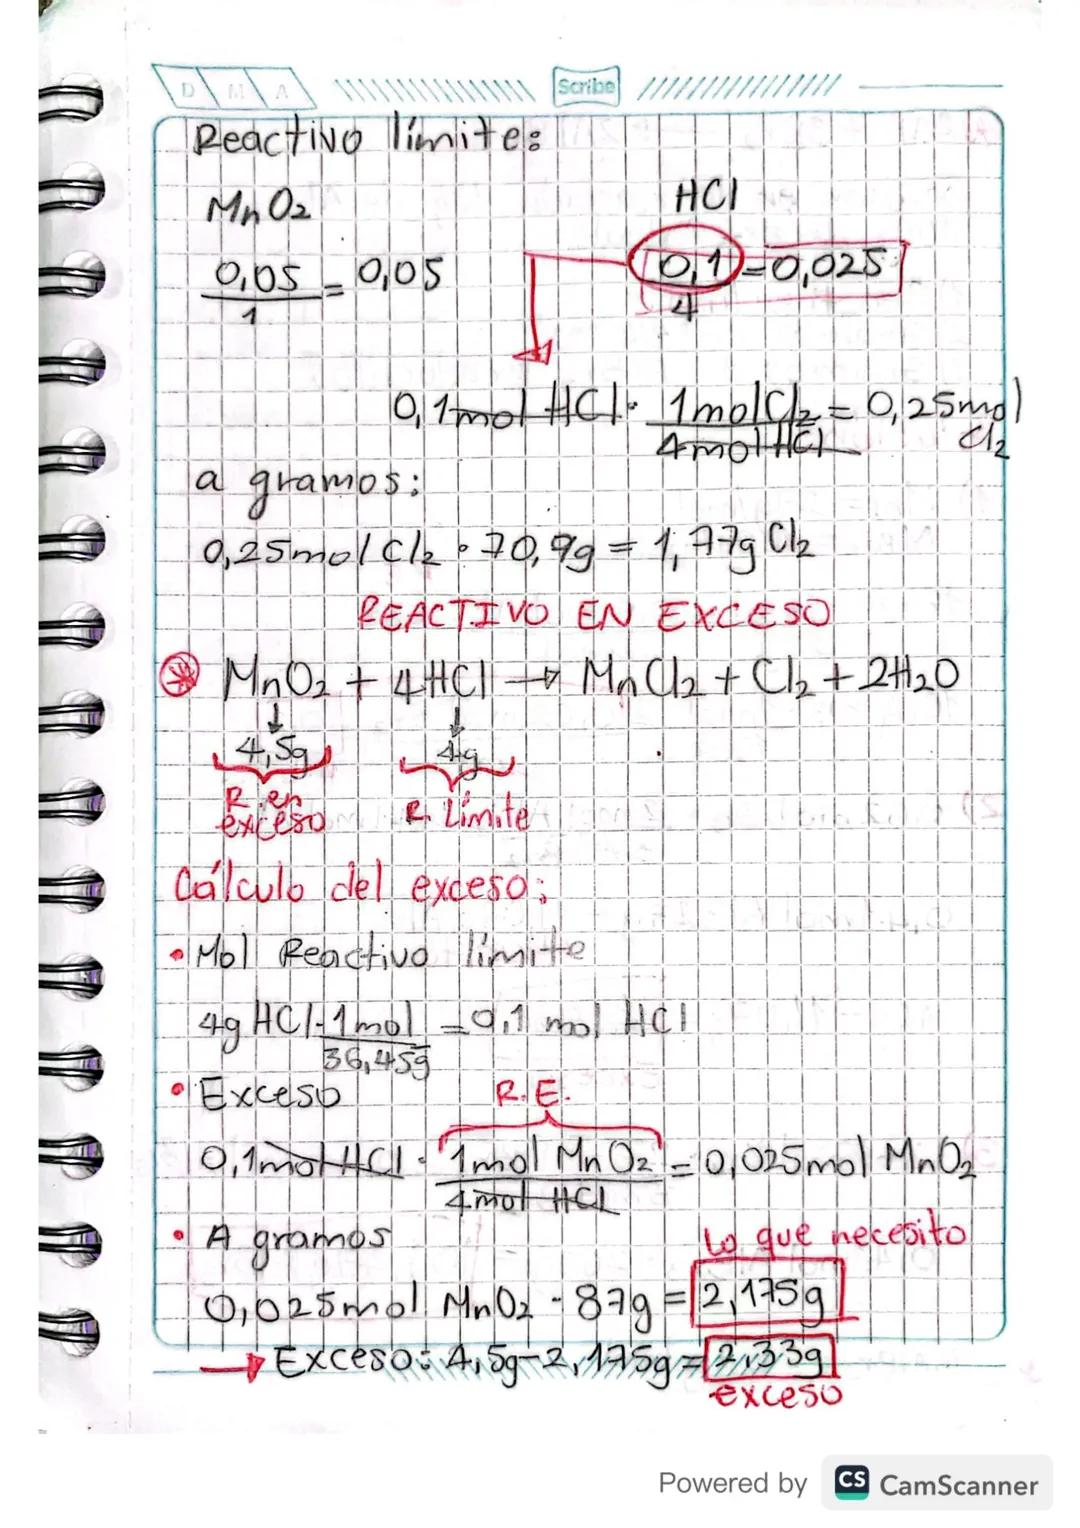 D M A Scribe
Reactivo límite:
MnO2 HCl
0,05 = 0,05 0,1 = 0,025
1 4
0,1mol HCl · 1molCl2 = 0,25mol
4molHCl Cl2
a gramos:
0,25mol Cl2 · 70,9g = 1,77g Cl2
REACTIVO EN EXCESO
MnO2 + 4HCl → MnCl2 + Cl2 + 2H2O
↓ ↓
4,5g 4g
R. en R. Límite
exceso
Cálculo del exceso:
• Mol Reactivo límite
4g HCl · 1mol = 0,1 mol HCl
36,45g
• Exceso R.E.
0,1mol HCl · 1mol MnO2 = 0,025mol MnO2
4mol HCl
• A gramos Lo que necesito
0,025mol MnO2 · 87g = 2,175g
→ Exceso: 4,5g-2,175g = 2,33g
exceso
Powered by CS CamScanner